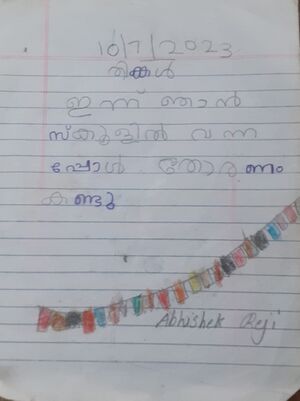 10/7/2023
തിങ്കൾ
ഇന്ന് ഞാൻ
സ്കൂളിൽ വന്ന
പ്പോൾ തോരണം
കണ്ടു
Abhishek Reji